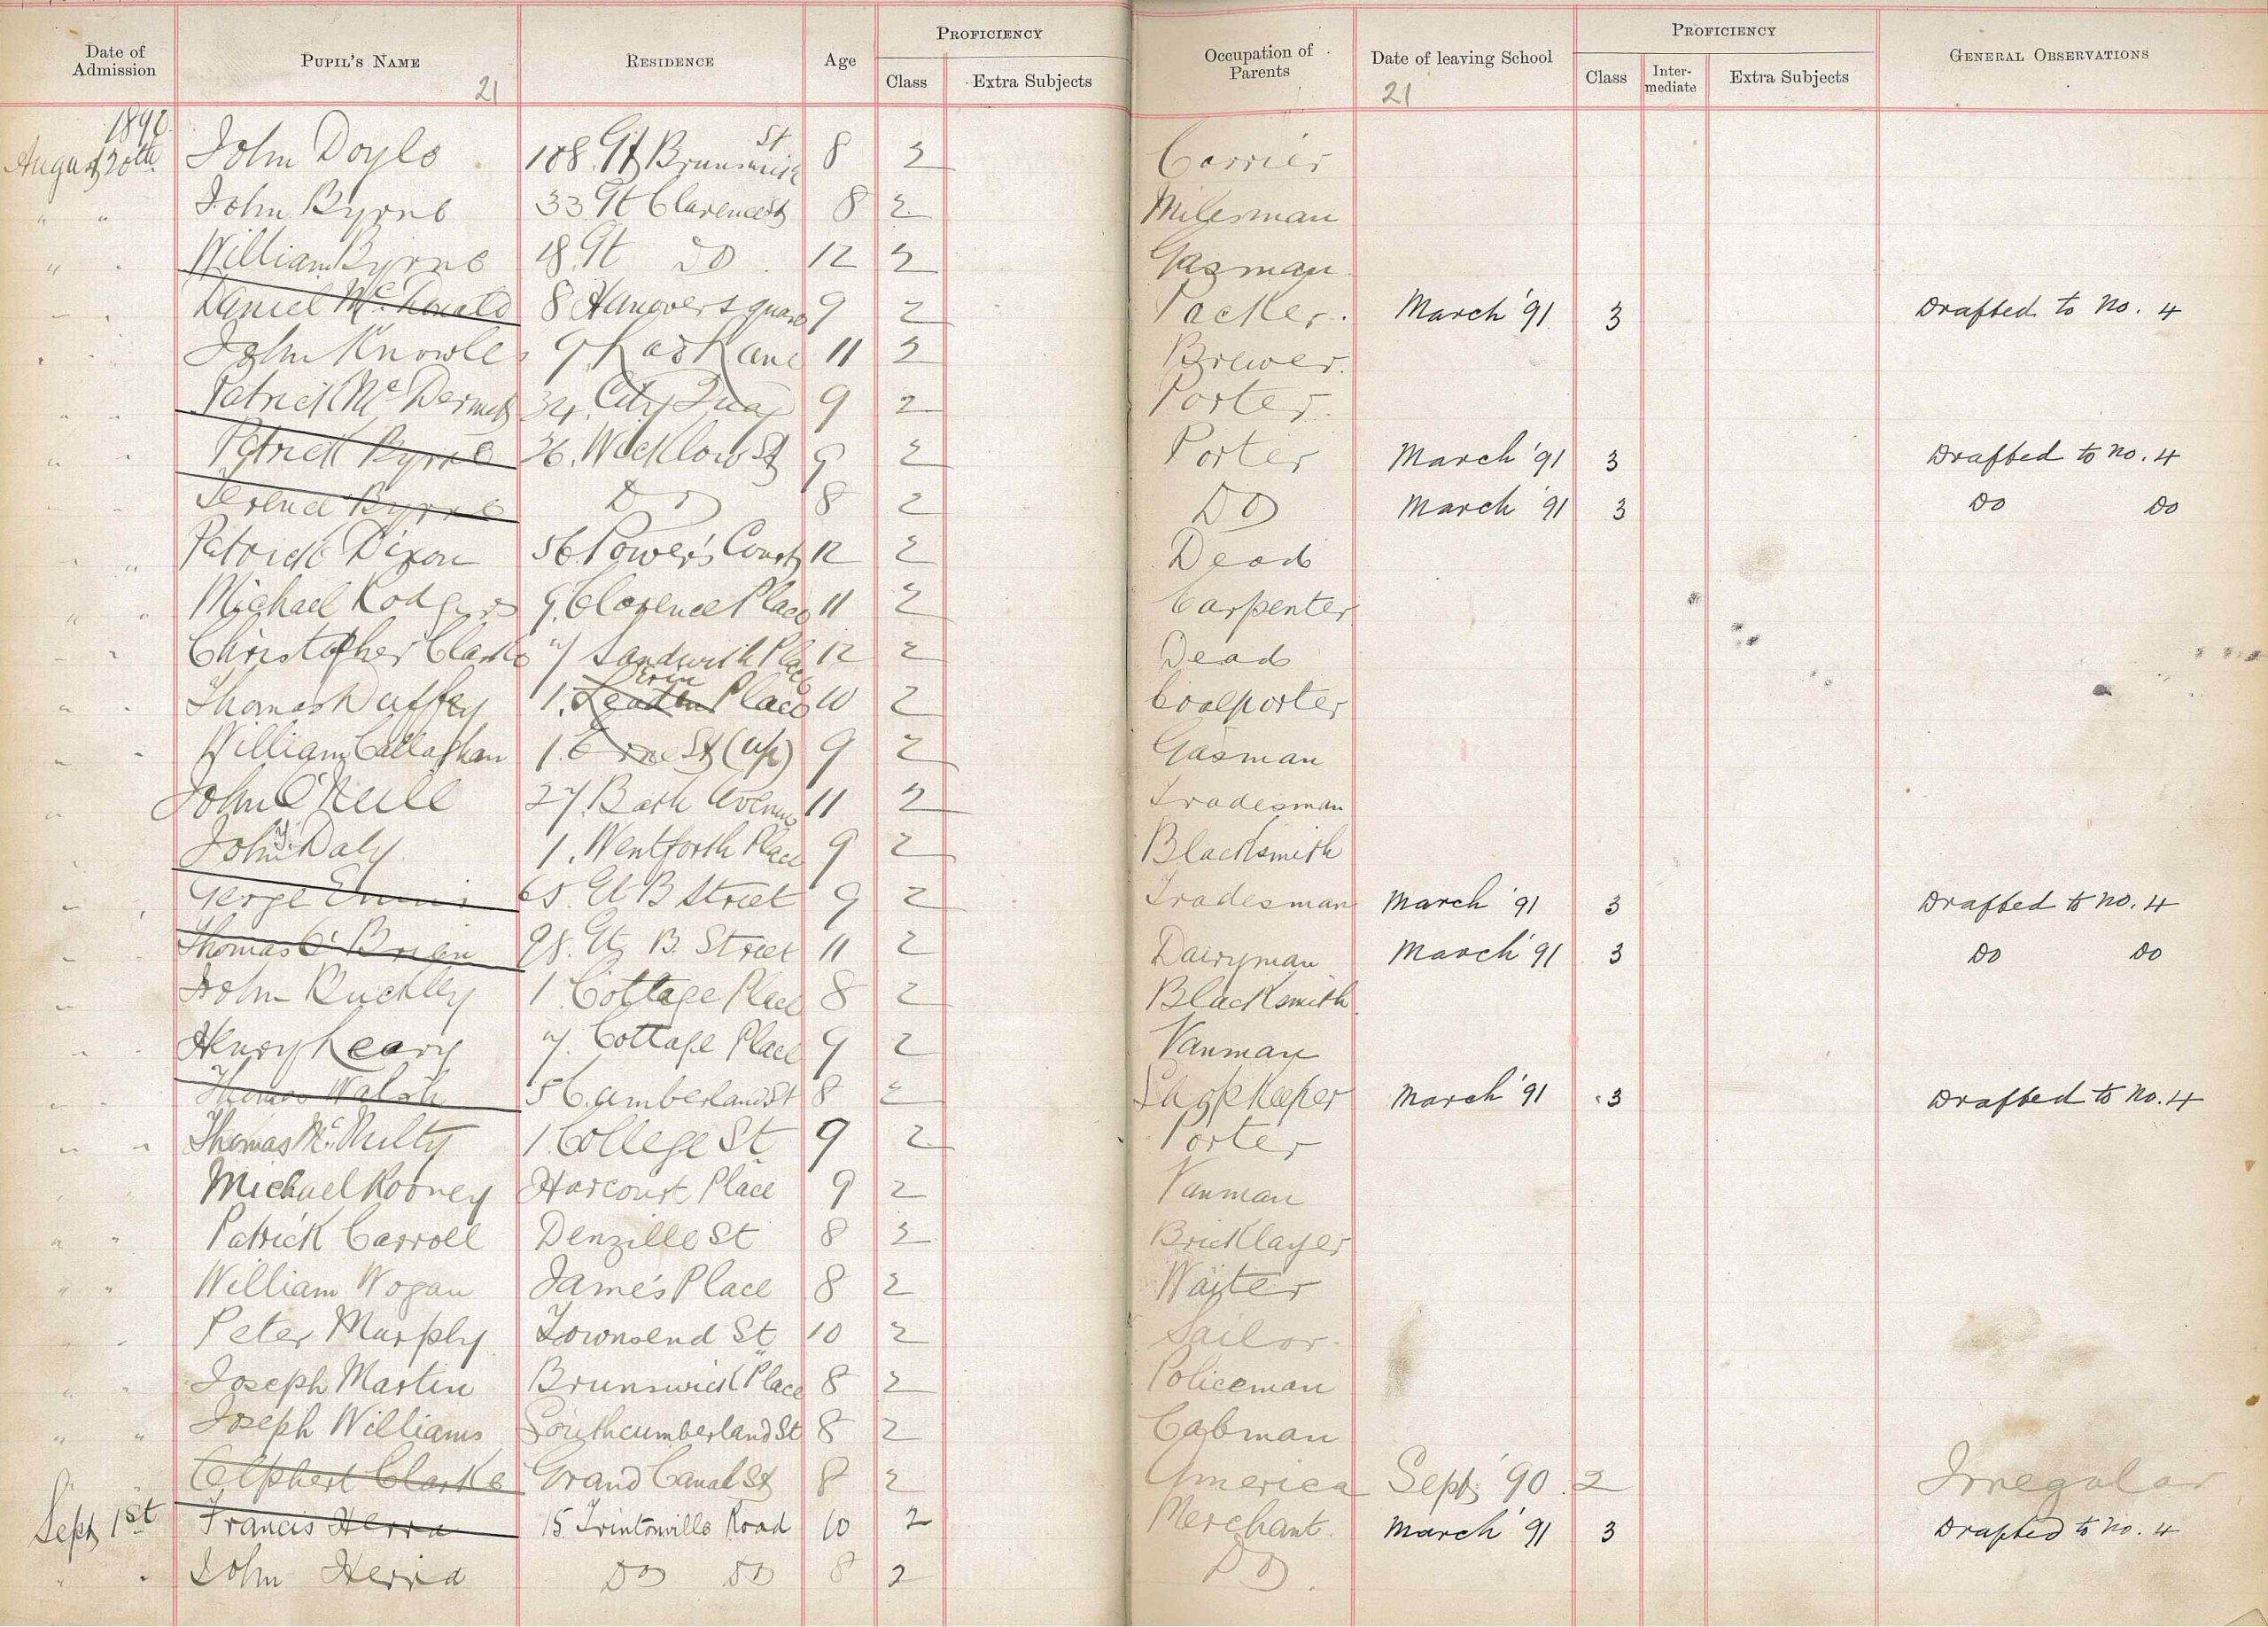 Date of Admission PUPIL'S NAME RESIDENCE Age PROFICIENCY Class Extra Subjects Occupation of Parents Date of leaving School PROFICIENCY Class Inter-mediate Extra Subjects GENERAL OBSERVATIONS
21 21
1890
August 20th John Doyle 188 Gt Brunswick St 8 2 Carrier
" " John Byrne 33 Gt Clarence St 8 2 Milesman
" " William Byrne 18 Gt Do 12 2 Gasman
" " Daniel McDonald 8 Hanover square 9 2 Packer. March '91 3 Drafted to No. 4
" " John Knowles 11 2 Brewer.
" " Patrick McDermott 34. City Quay 9 2 Porter.
" " Patrick Byrne 36. Wicklow St 9 2 Porter March '91 3 Drafted to No. 4
" " Terence Byrne Do 8 2 Do March '91 3 Do Do
" " Patrick Dixon 56 Power's Court 12 2 Dead
" " Michael Rodgers 9. Clarence Place 11 2 Carpenter
" " Christopher Clarke 7 Sandwith Place 12 2 Dead
" " Thomas Duffey 1. Erin Place 10 2 Coalporter
" " William Callaghan 1. Erne St (up) 9 2 Gasman
" John O'Neill 27. Bath Avenue 11 2 Tradesman
" John J. Daly 1. Wentforth Place 9 2 Blacksmith
" " Gerge Ennis 65. Gt B Street 9 2 Tradesman March '91 3 Drafted to No. 4
" Thomas O'Brien 98. Gt B. Street 11 2 Dairyman March '91 3 Do Do
" John Buckley 1 Cottage Place 8 2 Blacksmith
" " Henry Leary 7. Cottage Place 9 2 Vanman
" " Thomas Walsh 5 Cumberland St 8 2 Shopkeeper March '91 3 Drafted to No. 4
" " Thomas McNulty 1 College St 9 2 Porter
" " Michael Rooney Harcourt Place 9 2 Vanman
" " Patrick Carroll Denzille St 8 2 Bricklayer
" " William Wogan James's Place 8 2 Waiter
" " Peter Murphy Townsend St 10 2 Sailor.
" " Joseph Martin Brunswick Place 8 2 Policeman
" " Joseph Williams South cumberland St 8 2 Cabman
" " Clarke Grand Canal St 8 2 America Sept '90. 2 Irregular
Sept 1st Francis Herra 15 Road 10 2 Merchant. March '91 3 Drafted to No. 4
" " John Herra Do Do 8 2 Do.